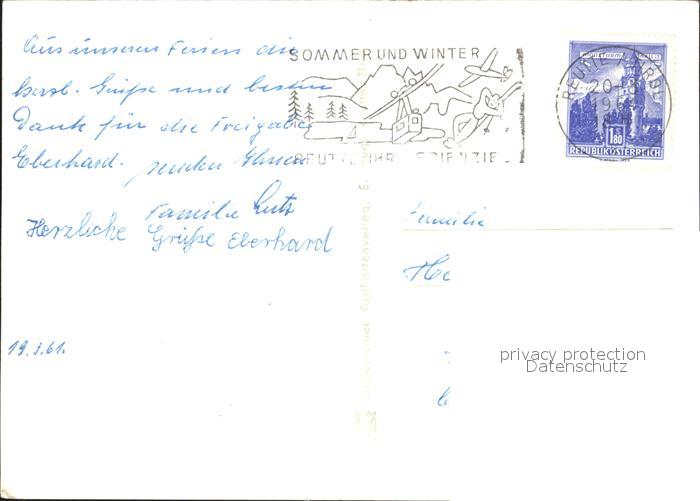 Aus unseren Ferien die
herzl. Grüße und besten
Dank für die Freigabe
Eberhard. senden Ihnen
Familie Lutz
Herzliche Grüße Eberhard
19.3.61.
SOMMER UND WINTER
REUTTE IHR FERIENZIEL
REUTTE TIROL
20
1.80
REPUBLIK ÖSTERREICH
Postkartenverlag, E.
Familie
He
privacy protection
Datenschutz